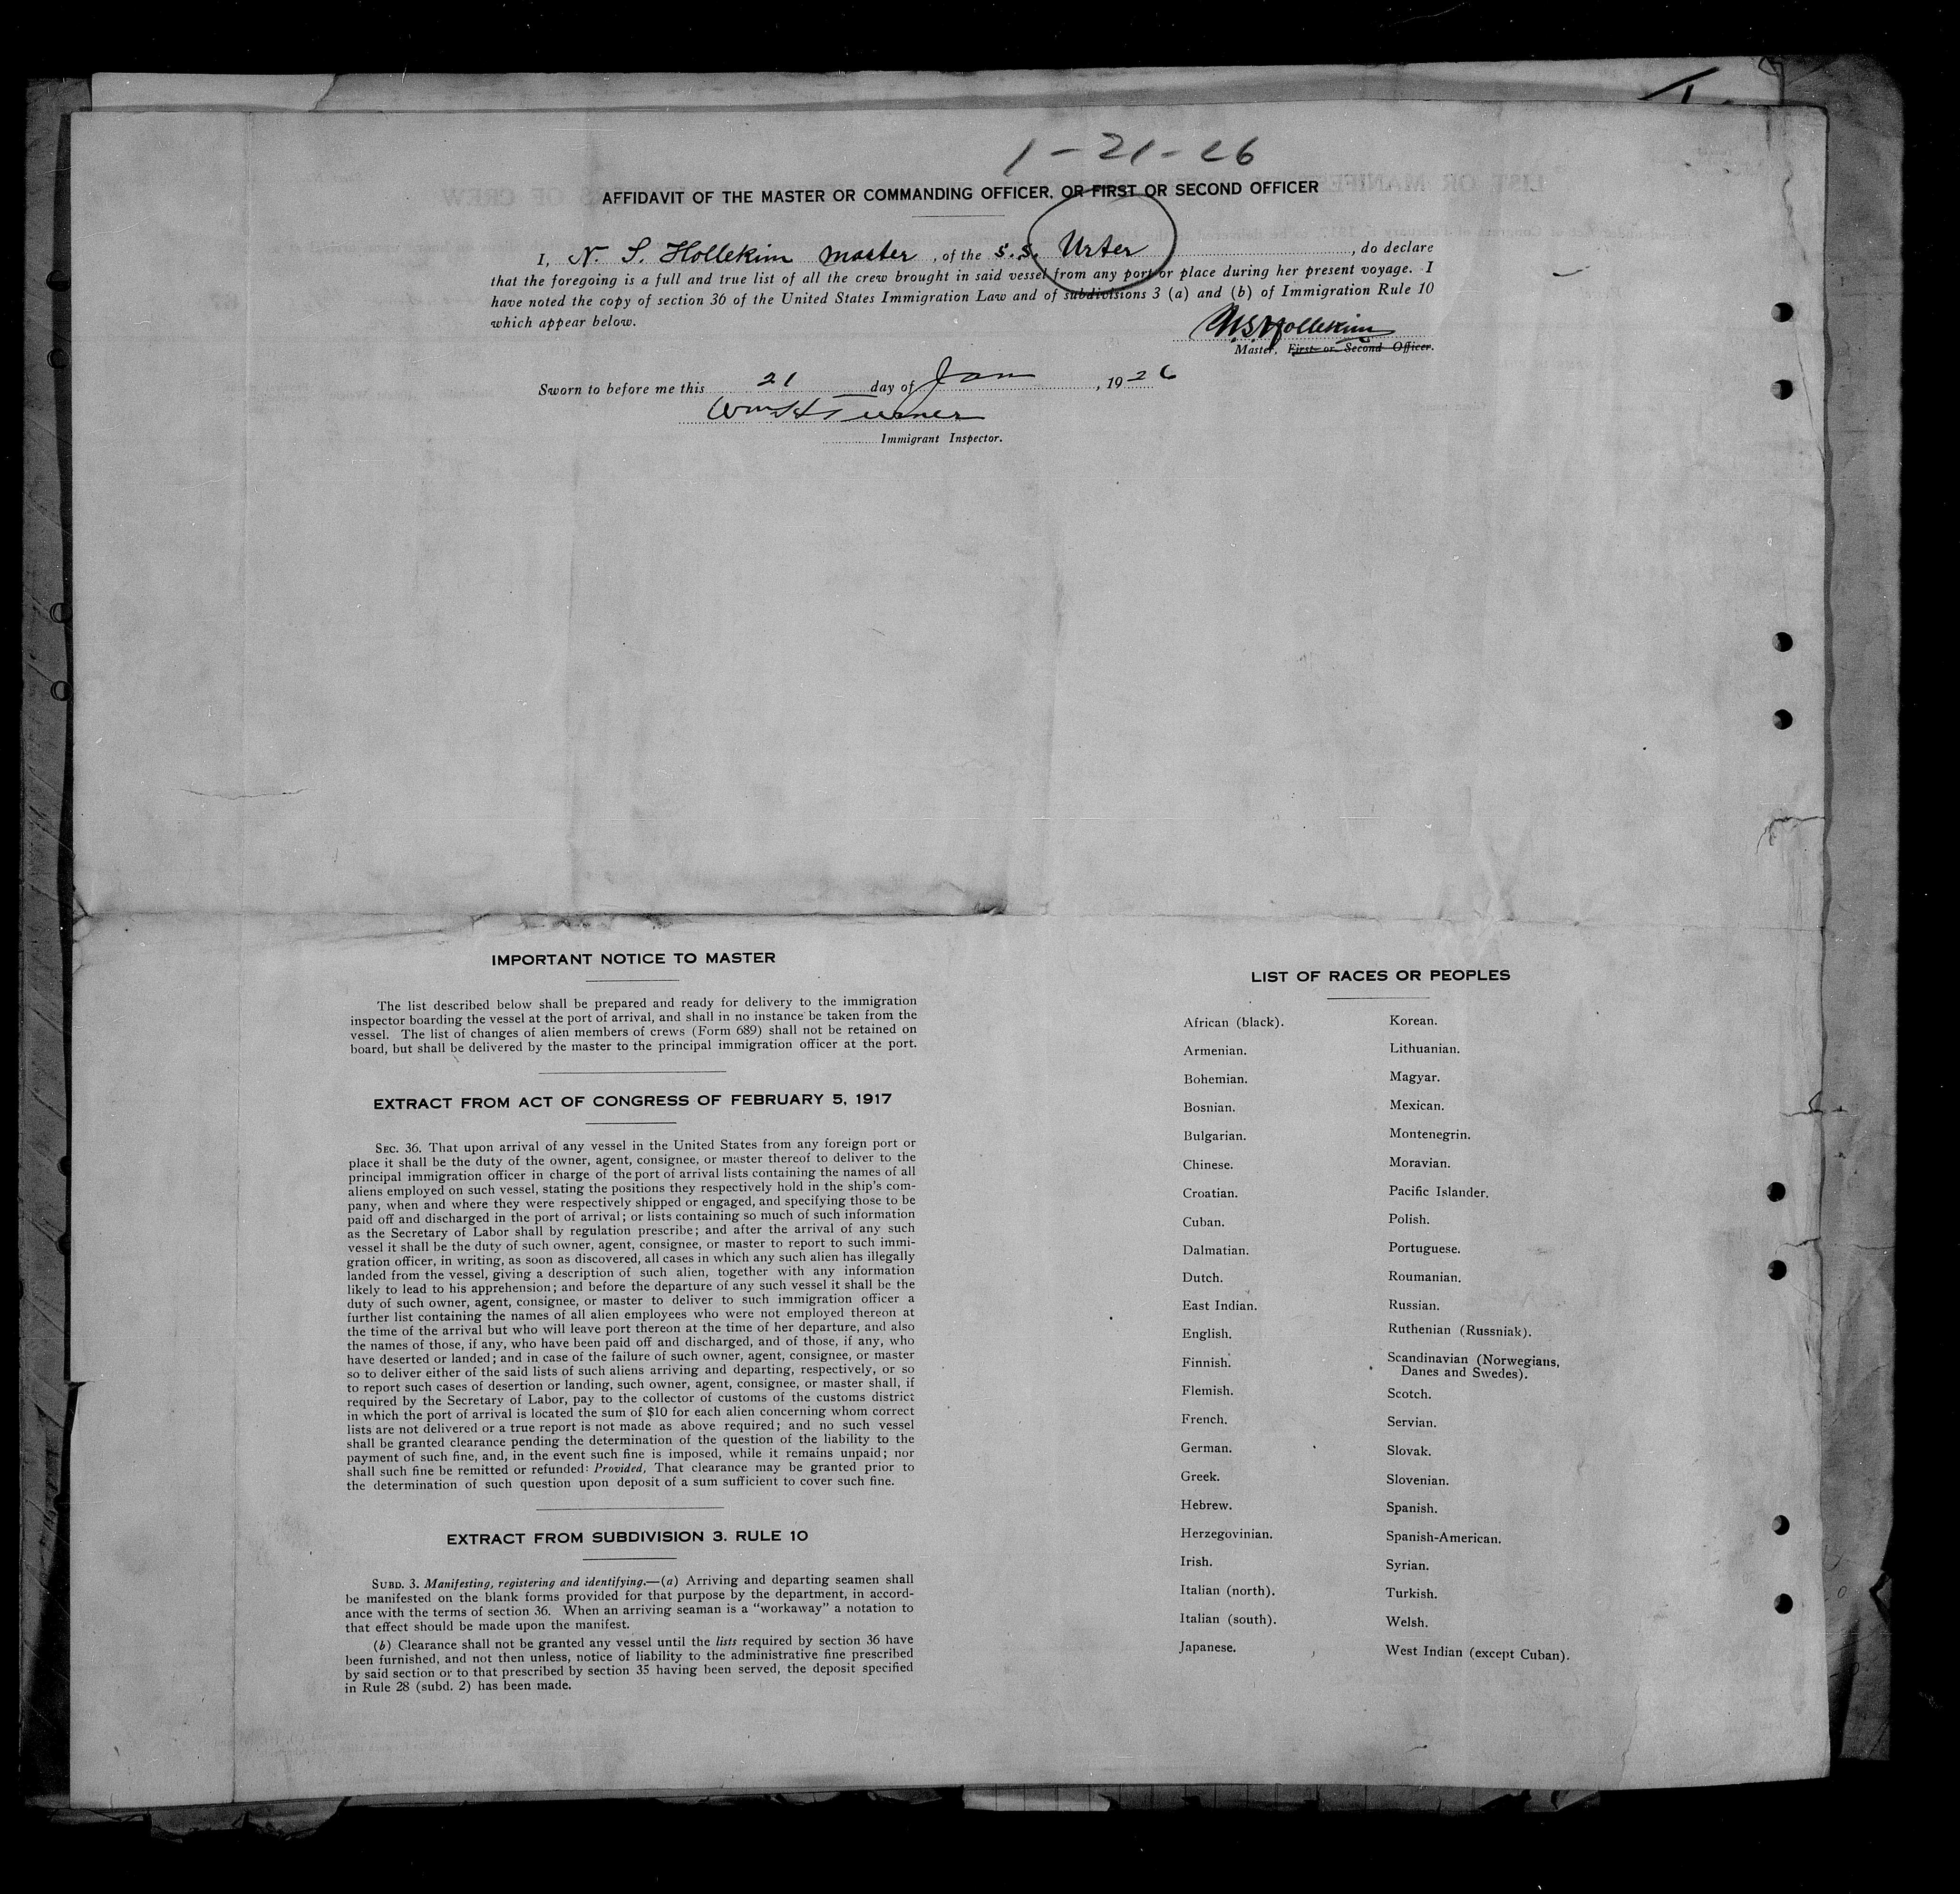 1-21-26
AFFIDAVIT OF THE MASTER OR COMMANDING OFFICER, OR FIRST OR SECOND OFFICER
I, N. S. Hollekim master, of the S.S. Urter, do declare
that the foregoing is a full and true list of all the crew brought in said vessel from any port or place during her present voyage. I
have noted the copy of section 36 of the United States Immigration Law and of subdivisions 3 (a) and (b) of Immigration Rule 10
which appear below.
N.S. Hollekim
Master, First or Second Officer.
Sworn to before me this 21 day of Jan, 1926
Wm H Turner
Immigrant Inspector.
IMPORTANT NOTICE TO MASTER
The list described below shall be prepared and ready for delivery to the immigration
inspector boarding the vessel at the port of arrival, and shall in no instance be taken from the
vessel. The list of changes of alien members of crews (Form 689) shall not be retained on
board, but shall be delivered by the master to the principal immigration officer at the port.
EXTRACT FROM ACT OF CONGRESS OF FEBRUARY 5, 1917
SEC. 36. That upon arrival of any vessel in the United States from any foreign port or
place it shall be the duty of the owner, agent, consignee, or master thereof to deliver to the
principal immigration officer in charge of the port of arrival lists containing the names of all
aliens employed on such vessel, stating the positions they respectively hold in the ship's com-
pany, when and where they were respectively shipped or engaged, and specifying those to be
paid off and discharged in the port of arrival; or lists containing so much of such information
as the Secretary of Labor shall by regulation prescribe; and after the arrival of any such
vessel it shall be the duty of such owner, agent, consignee, or master to report to such immi-
gration officer, in writing, as soon as discovered, all cases in which any such alien has illegally
landed from the vessel, giving a description of such alien, together with any information
likely to lead to his apprehension; and before the departure of any such vessel it shall be the
duty of such owner, agent, consignee, or master to deliver to such immigration officer a
further list containing the names of all alien employees who were not employed thereon at
the time of the arrival but who will leave port thereon at the time of her departure, and also
the names of those, if any, who have been paid off and discharged, and of those, if any, who
have deserted or landed; and in case of the failure of such owner, agent, consignee, or master
so to deliver either of the said lists of such aliens arriving and departing, respectively, or so
to report such cases of desertion or landing, such owner, agent, consignee, or master shall, if
required by the Secretary of Labor, pay to the collector of customs of the customs district
in which the port of arrival is located the sum of $10 for each alien concerning whom correct
lists are not delivered or a true report is not made as above required; and no such vessel
shall be granted clearance pending the determination of the question of the liability to the
payment of such fine, and, in the event such fine is imposed, while it remains unpaid; nor
shall such fine be remitted or refunded: Provided, That clearance may be granted prior to
the determination of such question upon deposit of a sum sufficient to cover such fine.
EXTRACT FROM SUBDIVISION 3. RULE 10
SUBD. 3. Manifesting, registering and identifying.—(a) Arriving and departing seamen shall
be manifested on the blank forms provided for that purpose by the department, in accord-
ance with the terms of section 36. When an arriving seaman is a "workaway" a notation to
that effect should be made upon the manifest.
(b) Clearance shall not be granted any vessel until the lists required by section 36 have
been furnished, and not then unless, notice of liability to the administrative fine prescribed
by said section or to that prescribed by section 35 having been served, the deposit specified
in Rule 28 (subd. 2) has been made.
LIST OF RACES OR PEOPLES
African (black).
Armenian.
Bohemian.
Bosnian.
Bulgarian.
Chinese.
Croatian.
Cuban.
Dalmatian.
Dutch.
East Indian.
English.
Finnish.
Flemish.
French.
German.
Greek.
Hebrew.
Herzegovinian.
Irish.
Italian (north).
Italian (south).
Japanese.
Korean.
Lithuanian.
Magyar.
Mexican.
Montenegrin.
Moravian.
Pacific Islander.
Polish.
Portuguese.
Roumanian.
Russian.
Ruthenian (Russniak).
Scandinavian (Norwegians,
Danes and Swedes).
Scotch.
Servian.
Slovak.
Slovenian.
Spanish.
Spanish-American.
Syrian.
Turkish.
Welsh.
West Indian (except Cuban).